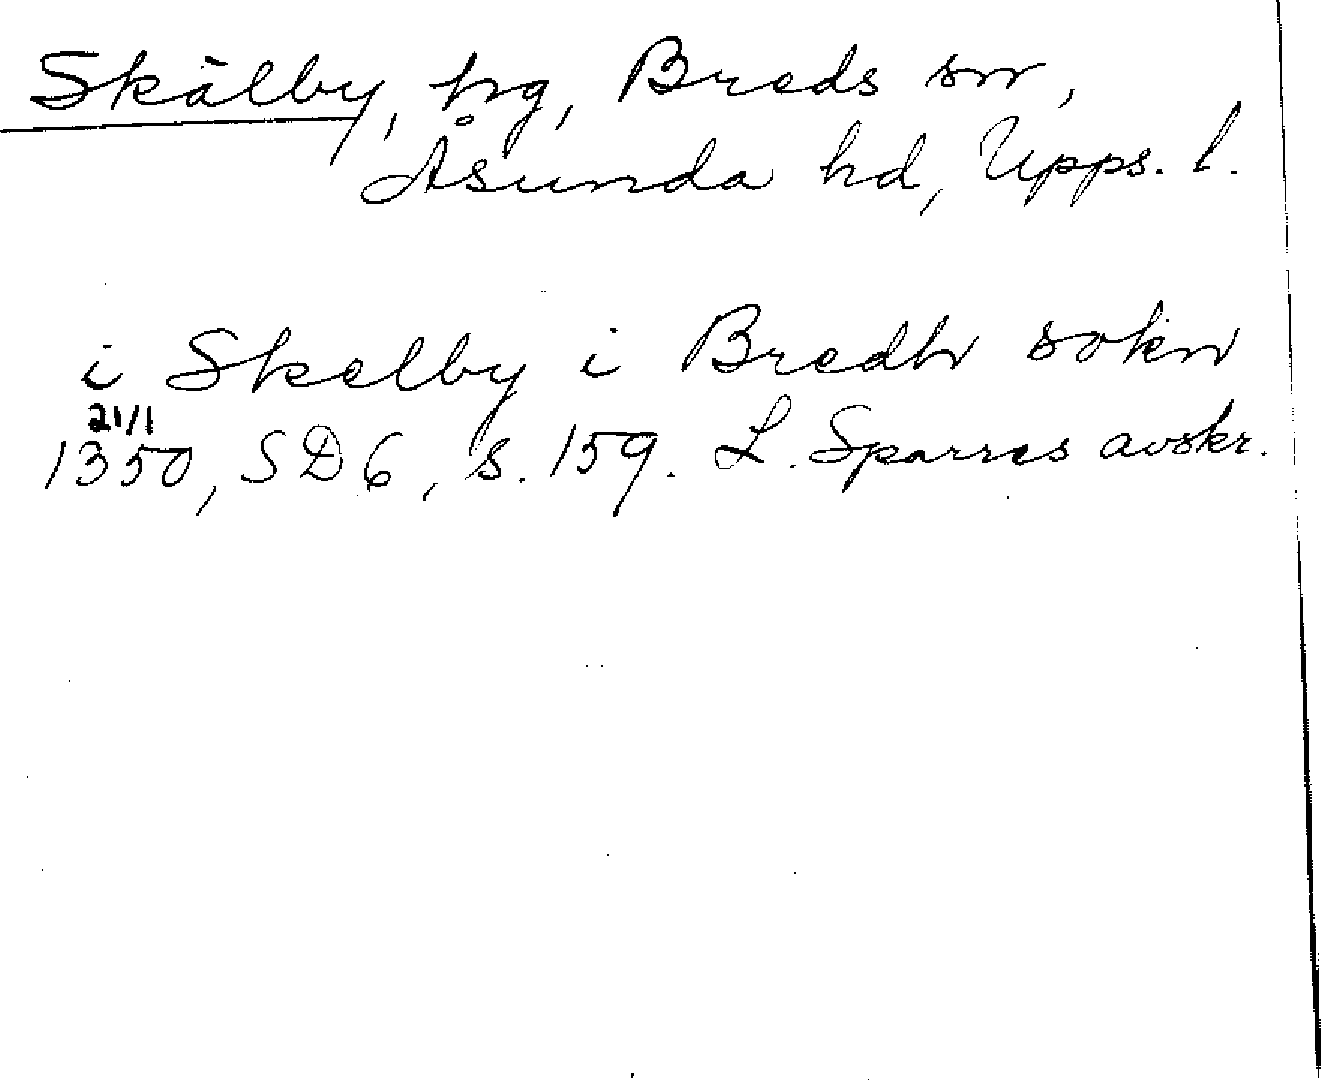 Skälby, hg, Breds sn,
Åsunda hd, Upps. l.
i Skelby i Bredh sokn
21/1
1350, SD 6, s. 159. L. Sparres avskr.